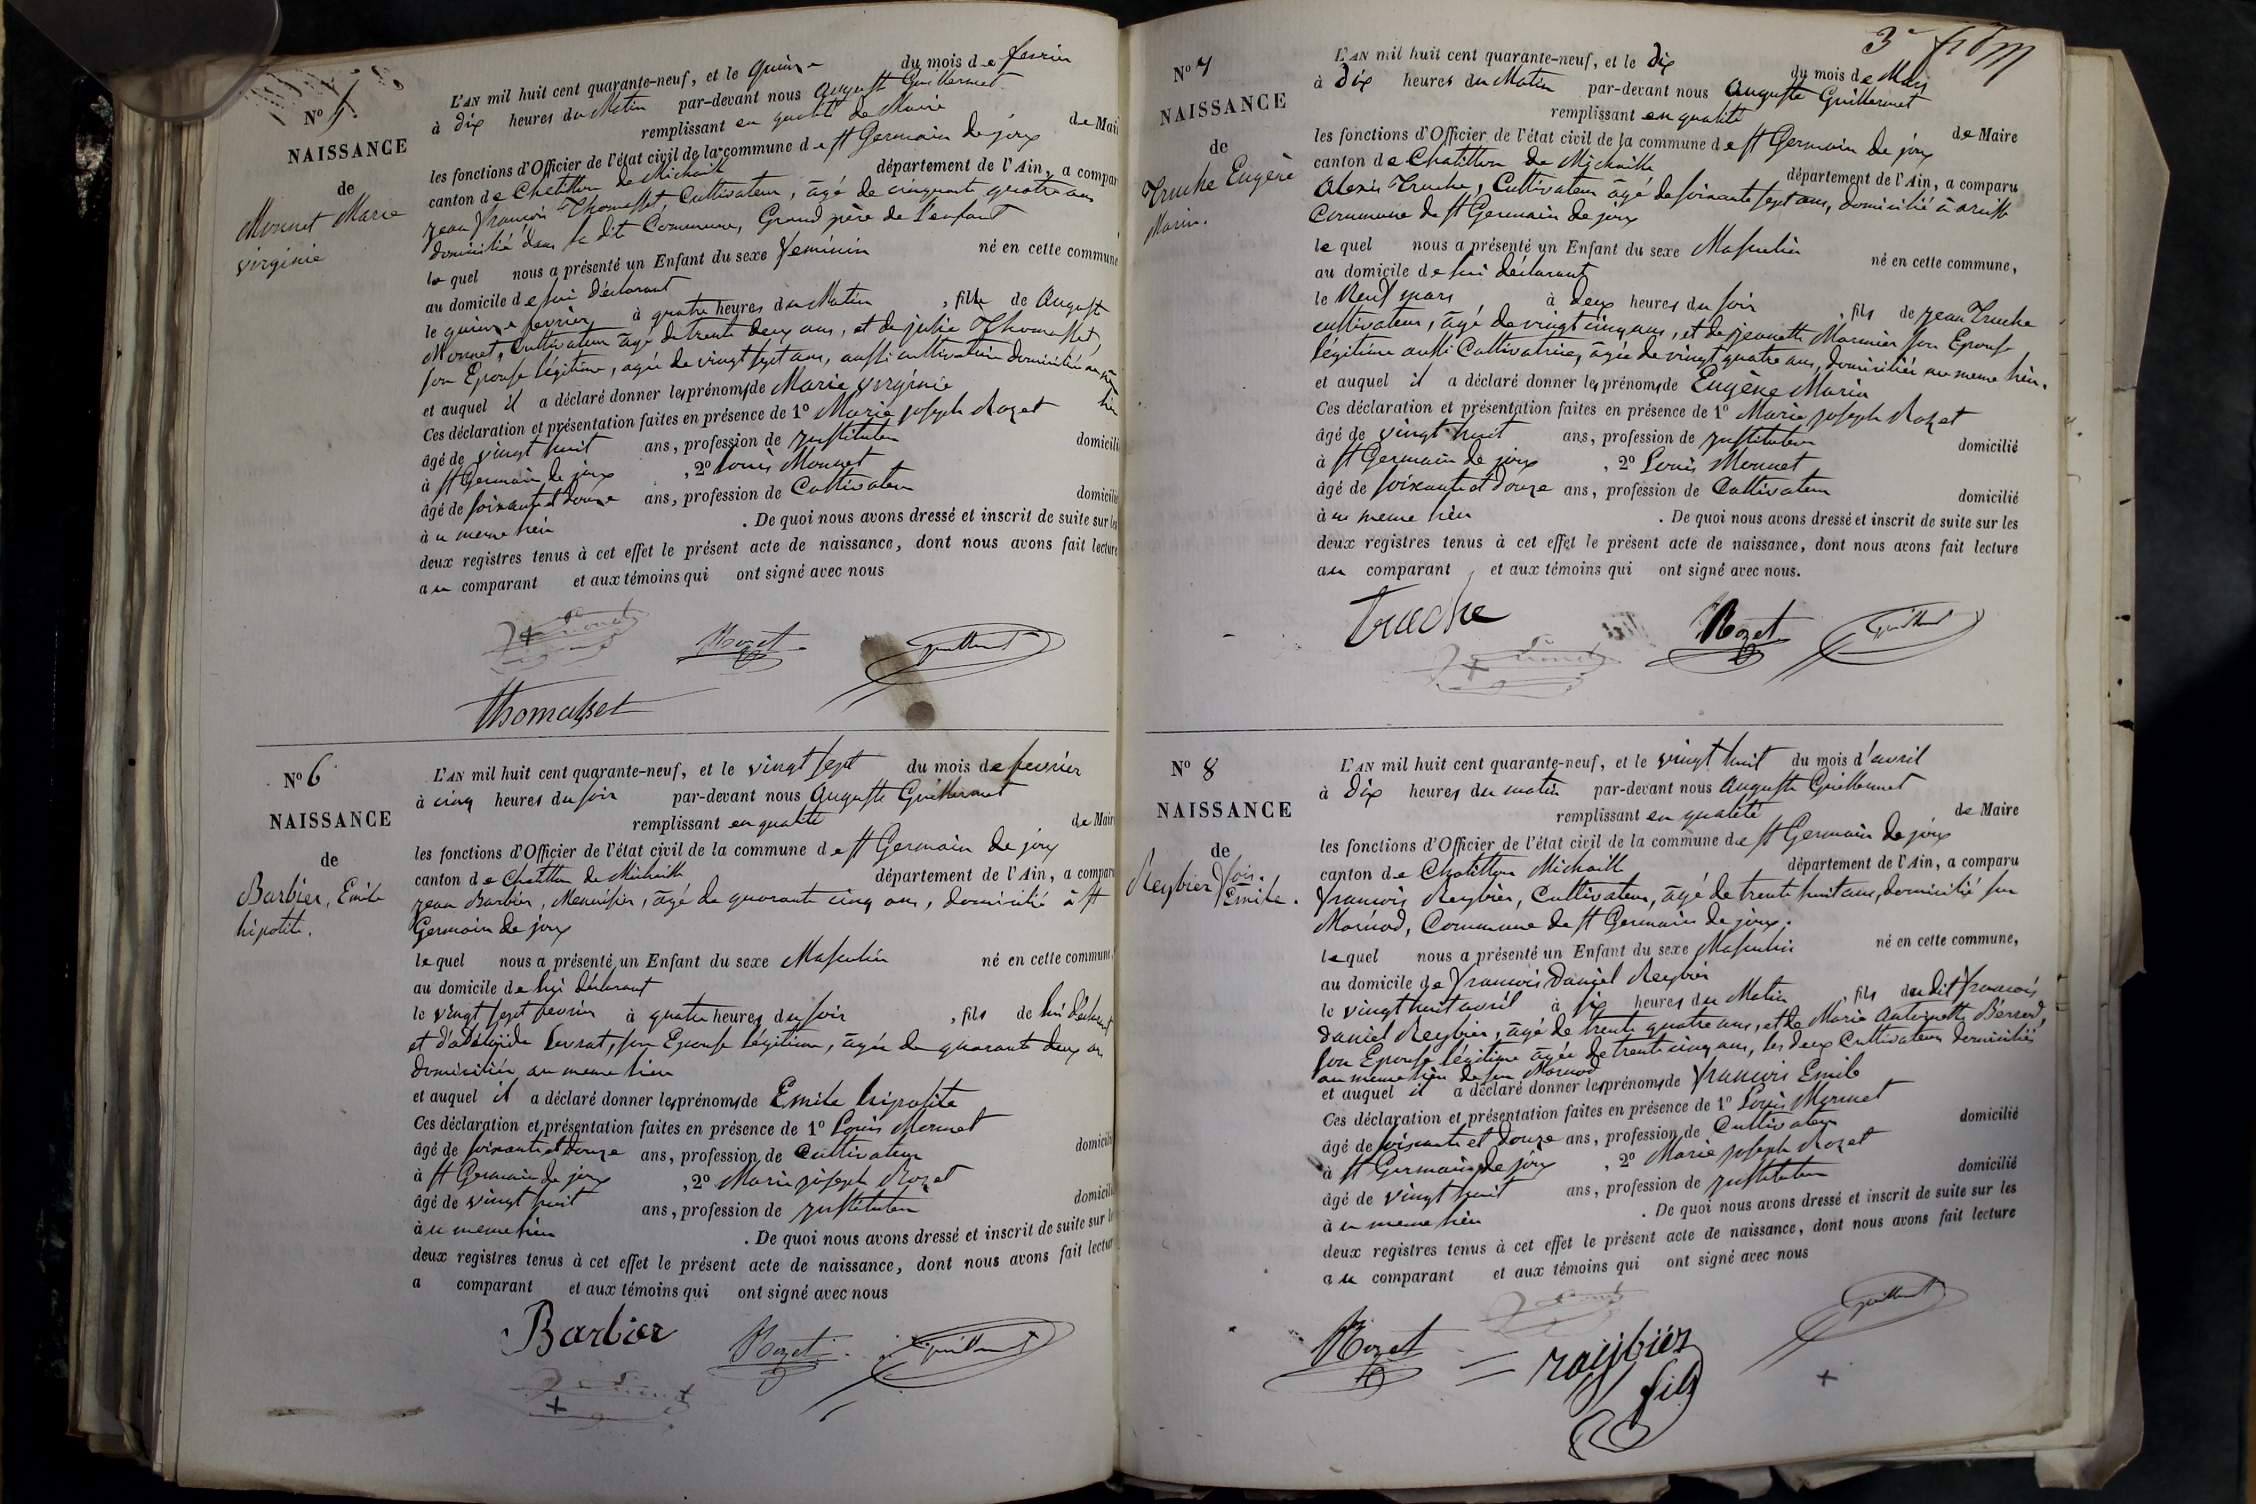 N° 5
NAISSANCE
de
Monnet Marie
virginie
L'AN mil huit cent quarante-neuf, et le quinze du mois de fevrier
à dix heures du Matin par-devant nous Auguste Guillermet
remplissant en qualité de Maire de Mai
les fonctions d'Officier de l'état civil de la commune de St Germain de joux
canton de Chatillon de Michaille département de l'Ain, a compar
jean françois Thomasset, Cultivateur, âgé de cinquante quatre ans
domicilié dans la dite Commune, Grand père de l'enfant
le quel nous a présenté un Enfant du sexe feminin né en cette commune
au domicile de lui déclarant
le quinze fevrier à quatre heures du Matin, fille de Auguste
Monnet, Cultivateur âgé de trente deux ans, et de julie Thomasset,
son Epouse légitime, agée de vingt sept ans, aussi cultivatrice domiciliés au même
lieu
et auquel il a déclaré donner les prénoms de Marie virginie
Ces déclaration et présentation faites en présence de 1° Marie joseph Rozet
âgé de vingt huit ans, profession de instituteur domicili
à St Germain de joux, 2° Louis Monnet
âgé de soixante et douze ans, profession de Cultivateur domicilié
à u meme lieu. De quoi nous avons dressé et inscrit de suite sur les
deux registres tenus à cet effet le présent acte de naissance, dont nous avons fait lecture
au comparant et aux témoins qui ont signé avec nous
Rozet
Thomasset
N° 6
NAISSANCE
de
Barbier, Emile
hipolite.
L'AN mil huit cent quarante-neuf, et le vingt sept du mois de fevrier
à cinq heures du soir par-devant nous Auguste Guillermet
remplissant en qualité de Mair
les fonctions d'Officier de l'état civil de la commune de St Germain de joux
canton de Chatillon de Michaille département de l'Ain, a compar
jean Barbier, Menuisier, âgé de quarante cinq ans, domicilié à St
Germain de joux
lequel nous a présenté un Enfant du sexe Masculin né en cette commune
au domicile de lui déclarant
le vingt sept fevrier à quatre heures du soir, fils de lui déclarant
et d'adélaïde Levrat, son Epouse légitime, âgée de quarante deux ans
domiciliée au meme lieu
et auquel il a déclaré donner les prénoms de Emile hipolite
Ces déclaration et présentation faites en présence de 1° Louis Monnet
âgé de soixante et douze ans, profession de Cultivateur domicili
à St Germain de joux, 2° Marie joseph Rozet
âgé de vingt huit ans, profession de instituteur domicili
à u meme lieu. De quoi nous avons dressé et inscrit de suite sur l
deux registres tenus à cet effet le présent acte de naissance, dont nous avons fait lectur
a comparant et aux témoins qui ont signé avec nous
Barbier
Rozet
3e
N° 7
NAISSANCE
de
Truche Eugène
Marin.
L'AN mil huit cent quarante-neuf, et le dix du mois de Mars
à dix heures du Matin par-devant nous Auguste Guillermet
remplissant en qualité de Maire
les fonctions d'Officier de l'état civil de la commune de St Germain de joux
canton de Chatillon de Michaille département de l'Ain, a comparu
Alexis Truche, Cultivateur âgé de soixante sept ans, domicilié à
Commune de St Germain de joux
le quel nous a présenté un Enfant du sexe Masculin né en cette commune,
au domicile de lui déclarant
le Neuf mars à deux heures du soir, fils de jean Truche
cultivateur, âgé de vingt cinq ans, et de jeanette Marinier son Epouse
légitime aussi Cultivatrice, âgée de vingt quatre ans, domiciliés au meme lieu.
et auquel il a déclaré donner les prénoms de Eugène Marin
Ces déclaration et présentation faites en présence de 1° Marie joseph Rozet
âgé de vingt huit ans, profession de instituteur domicilié
à St Germain de joux, 2° Louis Monnet
âgé de soixante et douze ans, profession de Cultivateur domicilié
à u meme lieu. De quoi nous avons dressé et inscrit de suite sur les
deux registres tenus à cet effet le présent acte de naissance, dont nous avons fait lecture
au comparant et aux témoins qui ont signé avec nous.
truche
Rozet
N° 8
NAISSANCE
de
Reybier fois.
Emile.
L'AN mil huit cent quarante-neuf, et le vingt huit du mois d'avril
à dix heures du matin par-devant nous Auguste Guillermet
remplissant en qualité de Maire
les fonctions d'Officier de l'état civil de la commune de St Germain de joux
canton de Chatillon Michaille département de l'Ain, a comparu
françois Reybier, Cultivateur, âgé de trente huit ans, domicilié sur
Marnod, Commune de St Germain de joux.
lequel nous a présenté un Enfant du sexe Masculin né en cette commune,
au domicile de françois Daniel Reybier
le vingt huit avril à six heures du Matin, fils du dit françois
Daniel Reybier, âgé de trente quatre ans, et de Marie Antoinette Bérrod,
son Epouse légitime âgée de trente cinq ans, les deux Cultivateurs domiciliés
au meme lieu de sur Marnod
et auquel il a déclaré donner les prénoms de françois Emile
Ces déclaration et présentation faites en présence de 1° Louis Monnet
âgé de soixante et douze ans, profession de Cultivateur domicilié
à St Germain de joux, 2° Marie joseph Rozet
âgé de vingt huit ans, profession de instituteur domicilié
à u meme lieu. De quoi nous avons dressé et inscrit de suite sur les
deux registres tenus à cet effet le présent acte de naissance, dont nous avons fait lecture
au comparant et aux témoins qui ont signé avec nous
Rozet
raybier
fils